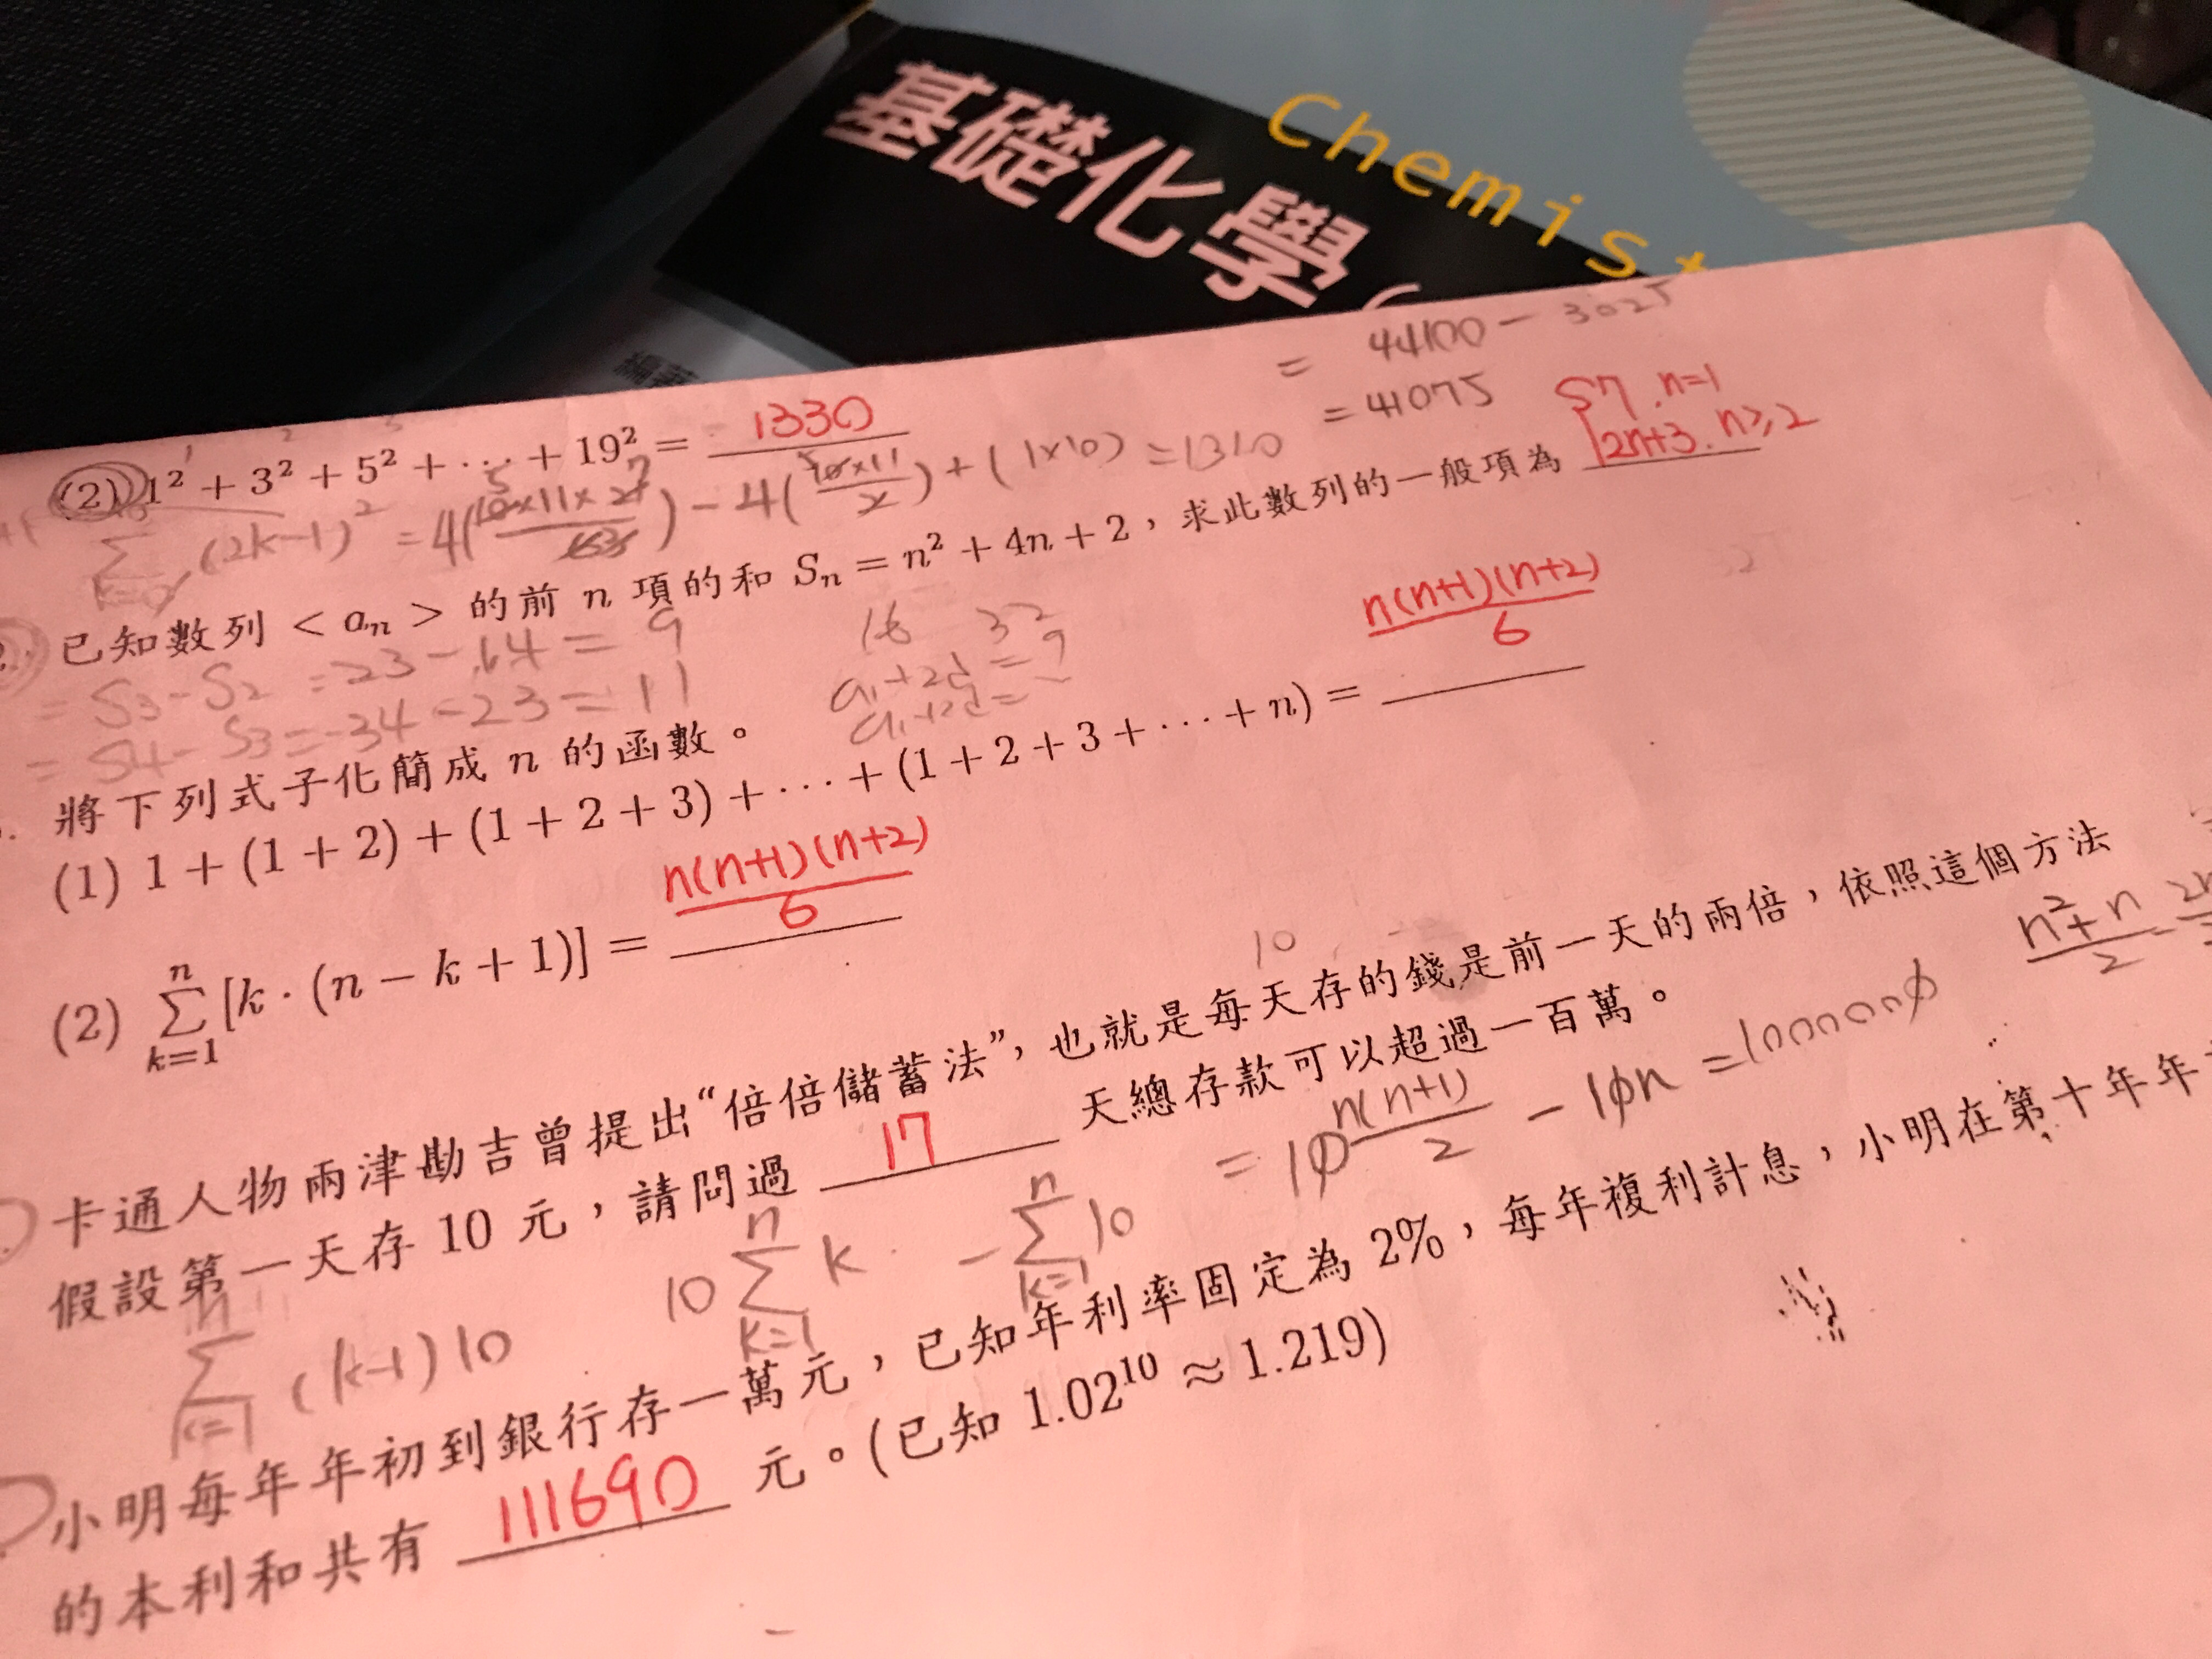 基礎化學(
Chemist
編著
= 44100 - 3025
= 41075
(2) 1² + 3² + 5² + ⋯ + 19² = 1330
(2k-1)² = 4(10×11×21/6) - 4(10×11/2) + (1×10) = 1310
已知數列 < aₙ > 的前 n 項的和 Sₙ = n² + 4n + 2，求此數列的一般項為 {7, n=1
2n+3, n≥2
= S3 - S2 = 23 - 14 = 9
= S4 - S3 = 34 - 23 = 11
16 32
a₁+2d = 9
將下列式子化簡成 n 的函數。
(1) 1 + (1 + 2) + (1 + 2 + 3) + ⋯ + (1 + 2 + 3 + ⋯ + n) = n(n+1)(n+2)/6
(2) ∑ₖ₌₁ⁿ [k · (n − k + 1)] = n(n+1)(n+2)/6
10
卡通人物兩津勘吉曾提出“倍倍儲蓄法”，也就是每天存的錢是前一天的兩倍，依照這個方法
假設第一天存 10 元，請問過 17 天總存款可以超過一百萬。
n²+n/2
∑ₖ₌₁ⁿ (k-1)10
10 ∑ₖ₌₁ⁿ k - ∑ₖ₌₁ⁿ 10 = 10 n(n+1)/2 - 10n = 1000000
小明每年年初到銀行存一萬元，已知年利率固定為 2%，每年複利計息，小明在第十年年
的本利和共有 111690 元。(已知 1.02¹⁰ ≈ 1.219)